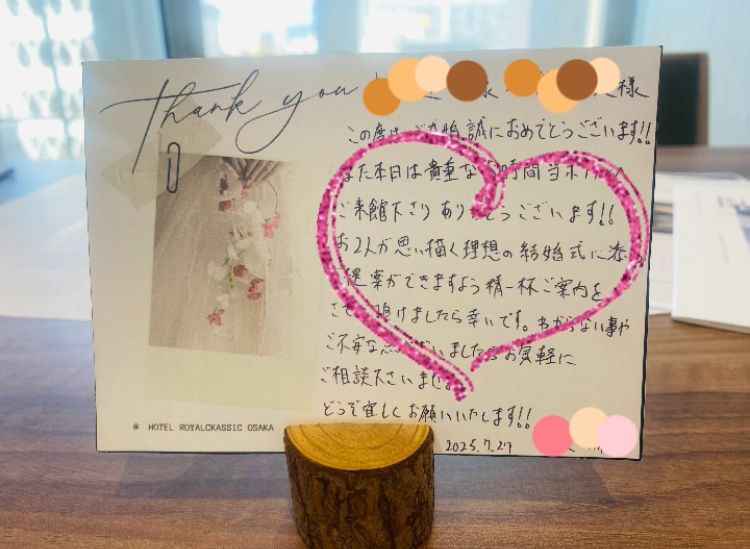 Thank you
様 様
この度は 誠におめでとうございます!!
また本日は貴重な 時間 当ホテル
ご来館下さり ありがとうございます!!
お2人が思い描く理想の結婚式に
提案ができますよう精一杯ご案内を
させ 頂けましたら幸いです。わからない事や
ご不安な点 ございましたら お気軽に
ご相談下さいませ
どうぞ宜しくお願いいたします!!
2025.7.27
HOTEL ROYALCKASSIC OSAKA